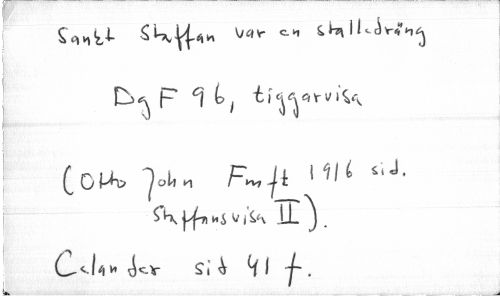 Sankt Staffan var en stalledräng
DgF 96, tiggarvisa
(Otto John Fmft 1916 sid.
Staffansvisa II).
Celander sid 41 f.